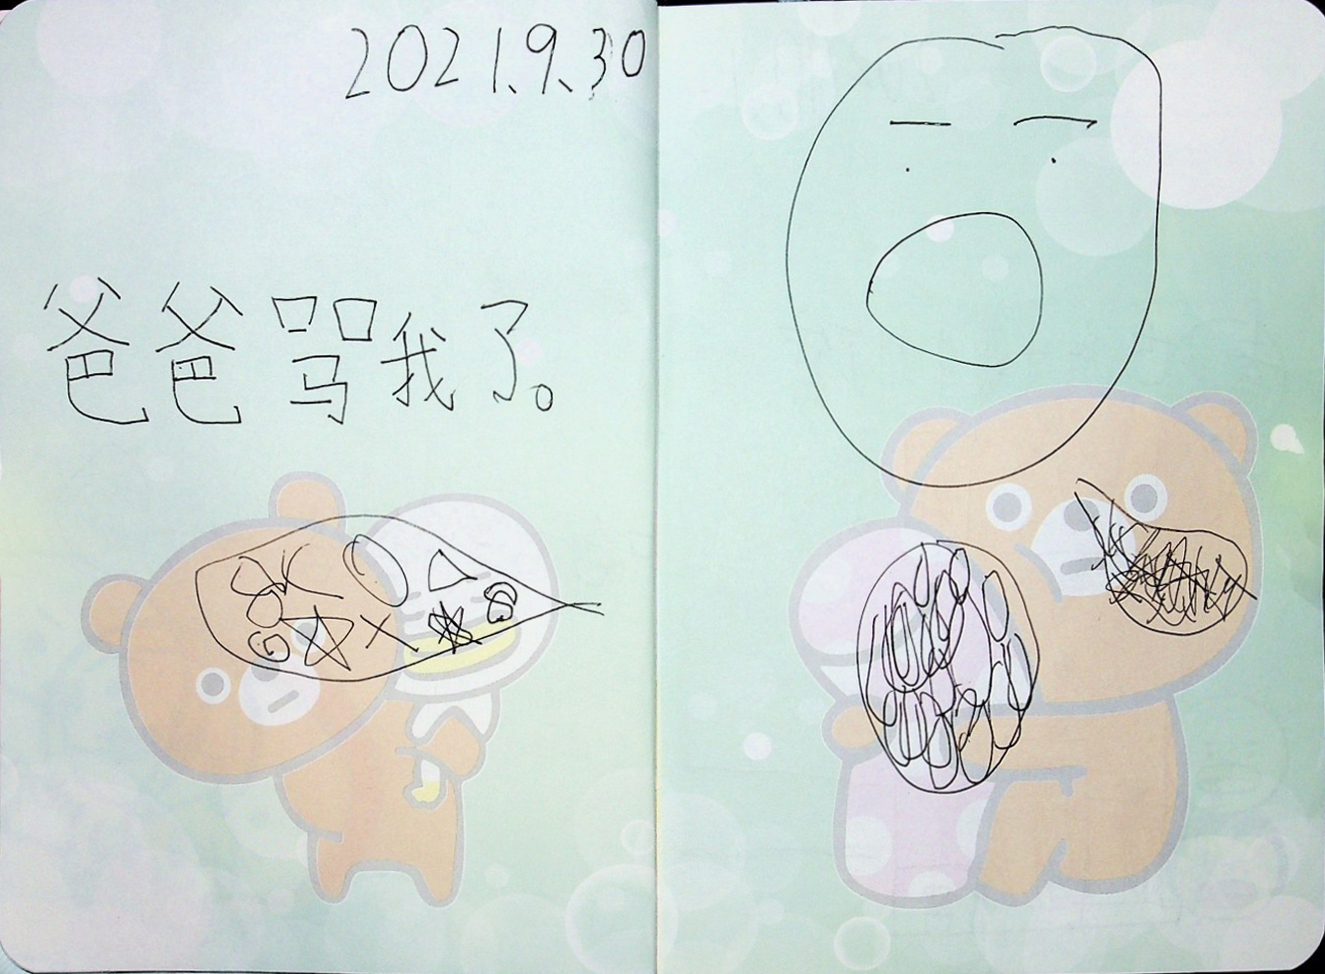 2021.9.30
爸爸骂我了。